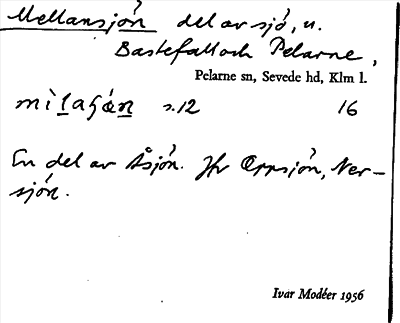 Mellansjön del av sjö, u.
Bastefall och Pelarne,
Pelarne sn, Sevede hd, Klm l.
s.12 16
En del av Åsjön. Jfr Oppsjön, Ner-
sjön.
Ivar Modéer 1956